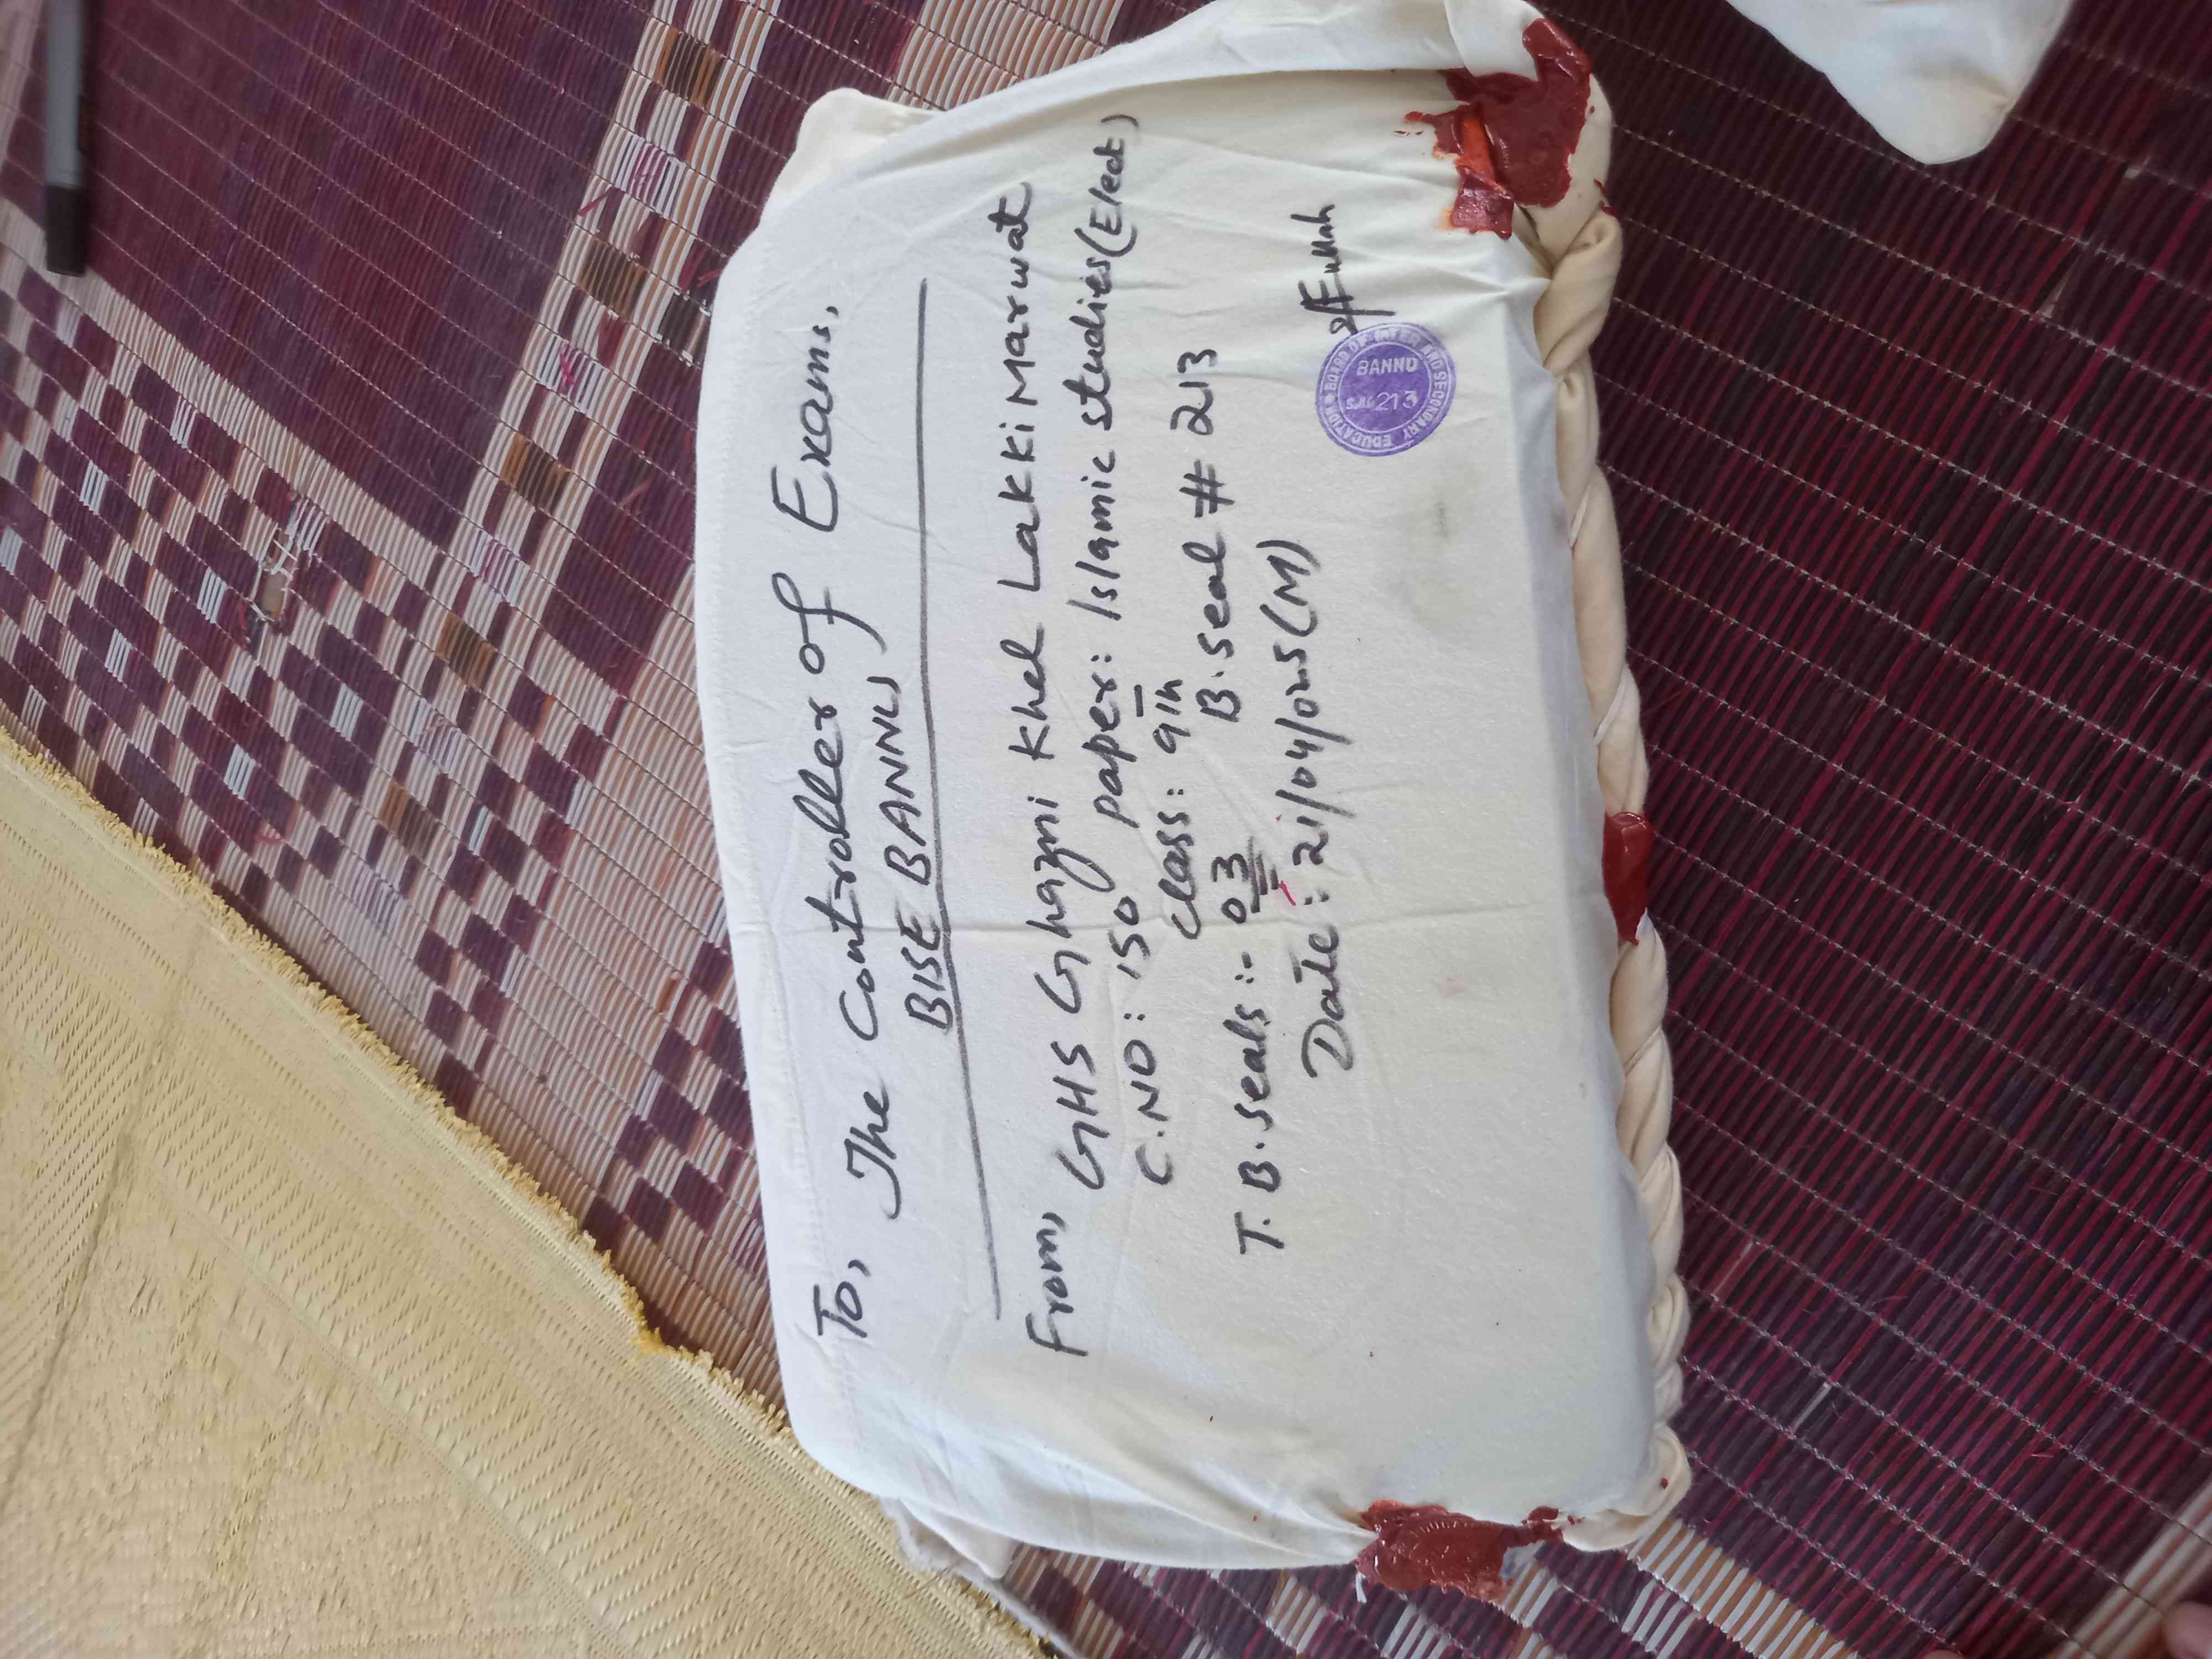 To,
The Controller of Exams,
BISE BANNU
From,
GHS Ghazni Khel Lakki Marwat
C.NO: 150 paper: Islamic studies(Elect)
Class: 9th
T. B. seals :- 03 B. seal # 213
Date: 21/04/025(M)
BOARD OF INTER AND SECONDARY EDUCATION
BANNU
S.No. 213